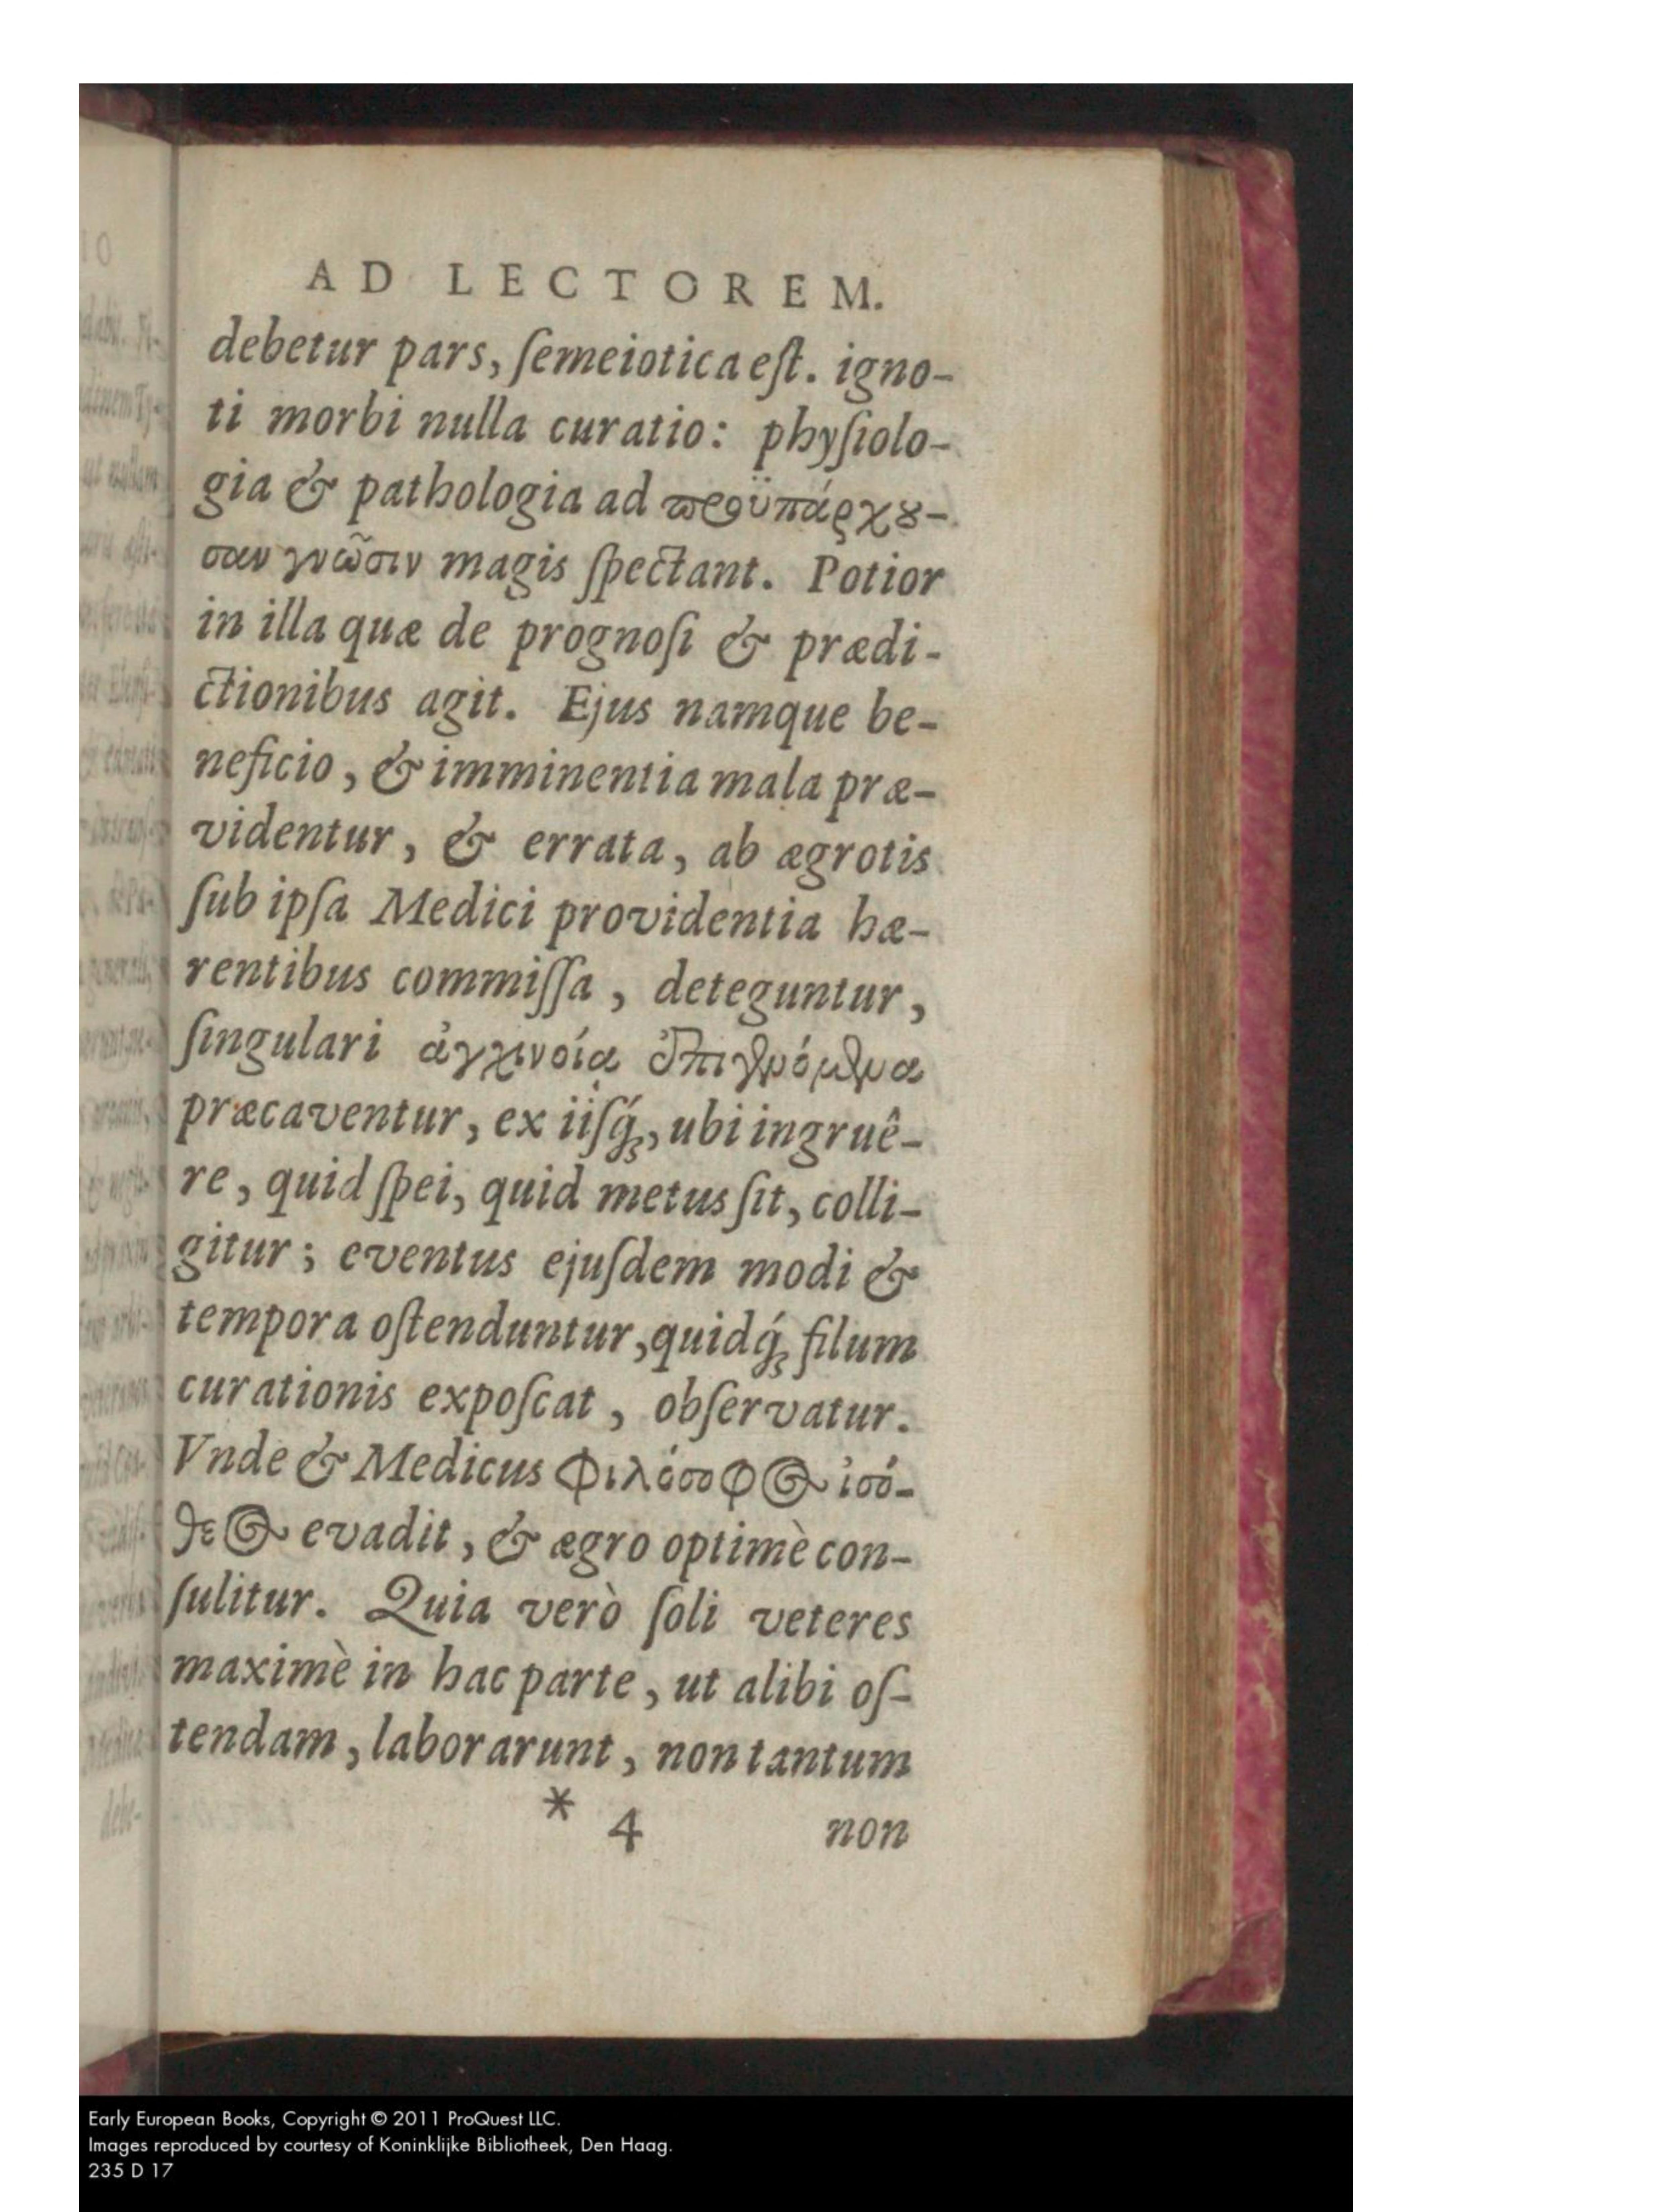 AD LECTOREM.
debetur pars, ſemeiotica eſt. igno-
ti morbi nulla curatio: phyſiolo-
gia & pathologia ad ϖροϋπάρχȣ-
σαν γνῶσιν magis ſpectant. Potior
in illa quæ de prognoſi & prædi-
ctionibus agit. Ejus namque be-
neficio, & imminentia mala præ-
videntur, & errata, ab ægrotis
ſub ipſa Medici providentia hæ-
rentibus commiſſa, deteguntur,
ſingulari ἀγχινοίᾳ ἐπιγενόμενα
præcaventur, ex iiſq́;, ubi ingruê-
re, quid ſpei, quid metus ſit, colli-
gitur; eventus ejuſdem modi &
tempora oſtenduntur, quidq́; filum
curationis expoſcat, obſervatur.
Vnde & Medicus Φιλόσοφος ἰσό-
θεος evadit, & ægro optimè con-
ſulitur. Quia verò ſoli veteres
maximè in hac parte, ut alibi oſ-
tendam, laborarunt, non tantum
* 4 non
Early European Books, Copyright © 2011 ProQuest LLC.
Images reproduced by courtesy of Koninklijke Bibliotheek, Den Haag.
235 D 17